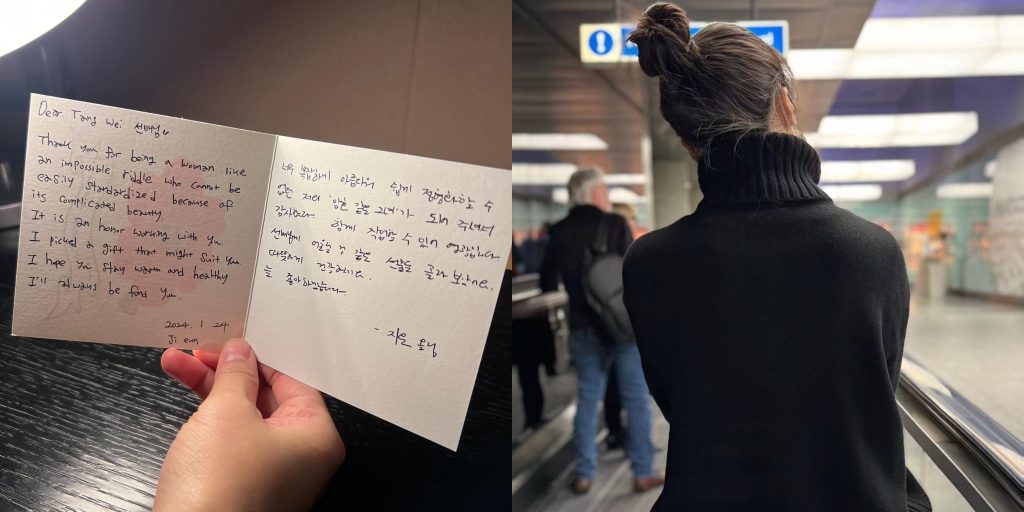 Dear Tang Wei 선배님♥
Thank you for being a woman like
an impossible riddle who cannot be
easily standardized because of
its complicated beauty.
It is an honor working with you.
I picked a gift that might suit you.
I hope you stay warm and healthy
I'll always be fans you.
2024. 1. 24
Ji eun
너무 복잡하게 아름다워 쉽게 정형화할 수
없는 같은 되어 주셔서
감사해요. 함께 작업할 수 있어 영광입니다.
선배님께 어울릴 것 같은 선물을 골라 보았어요.
따뜻하게 건강하세요.
늘 좋아하겠습니다.
- 지은 올림